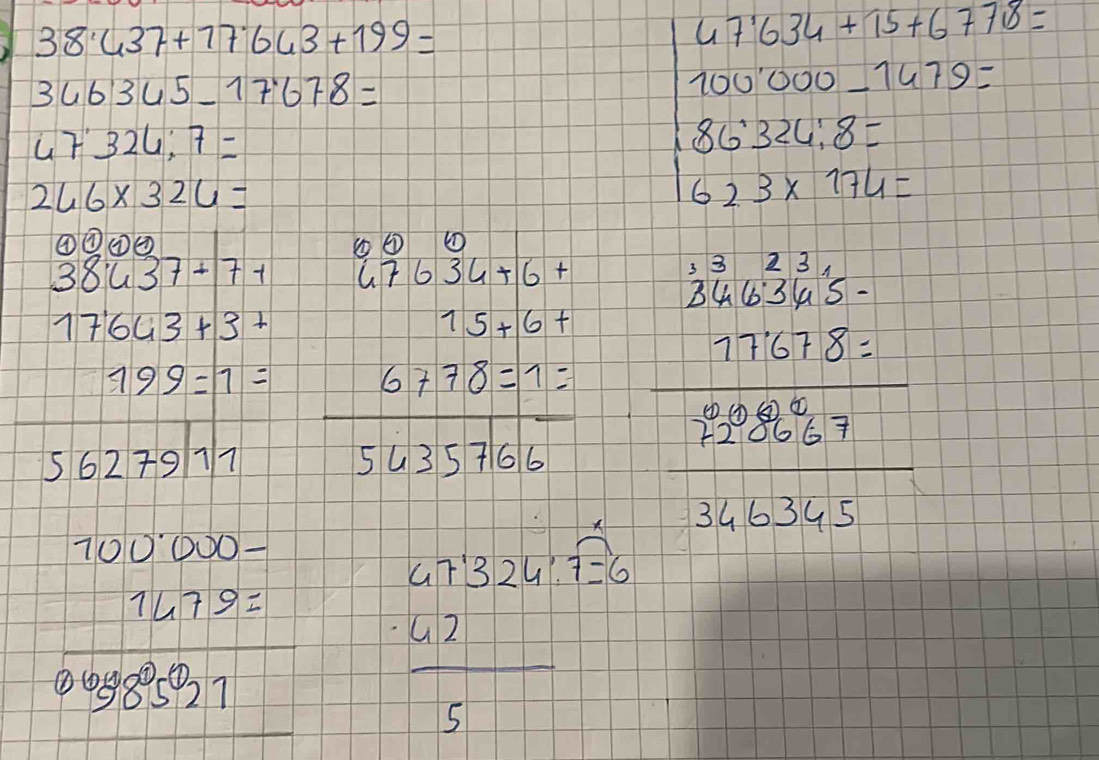 38'437+17'643+199=
346'345-17'678=
47'324:7=
246×324=
47'634+15+6778=
100'000-1479=
86'324:8=
623×174=
1 1 1 1
38'437+7+
17'643+3+
199=1=
5627911
1 1 1
47634+6+
15+6+
6778=1=
5435766
3 3 2 3 1
346'345-
17'678=
1 1 1 1
728667
346345
100'000-
1479=
1 1 1 1 1
98521
×
47'324:7=6
-42
5